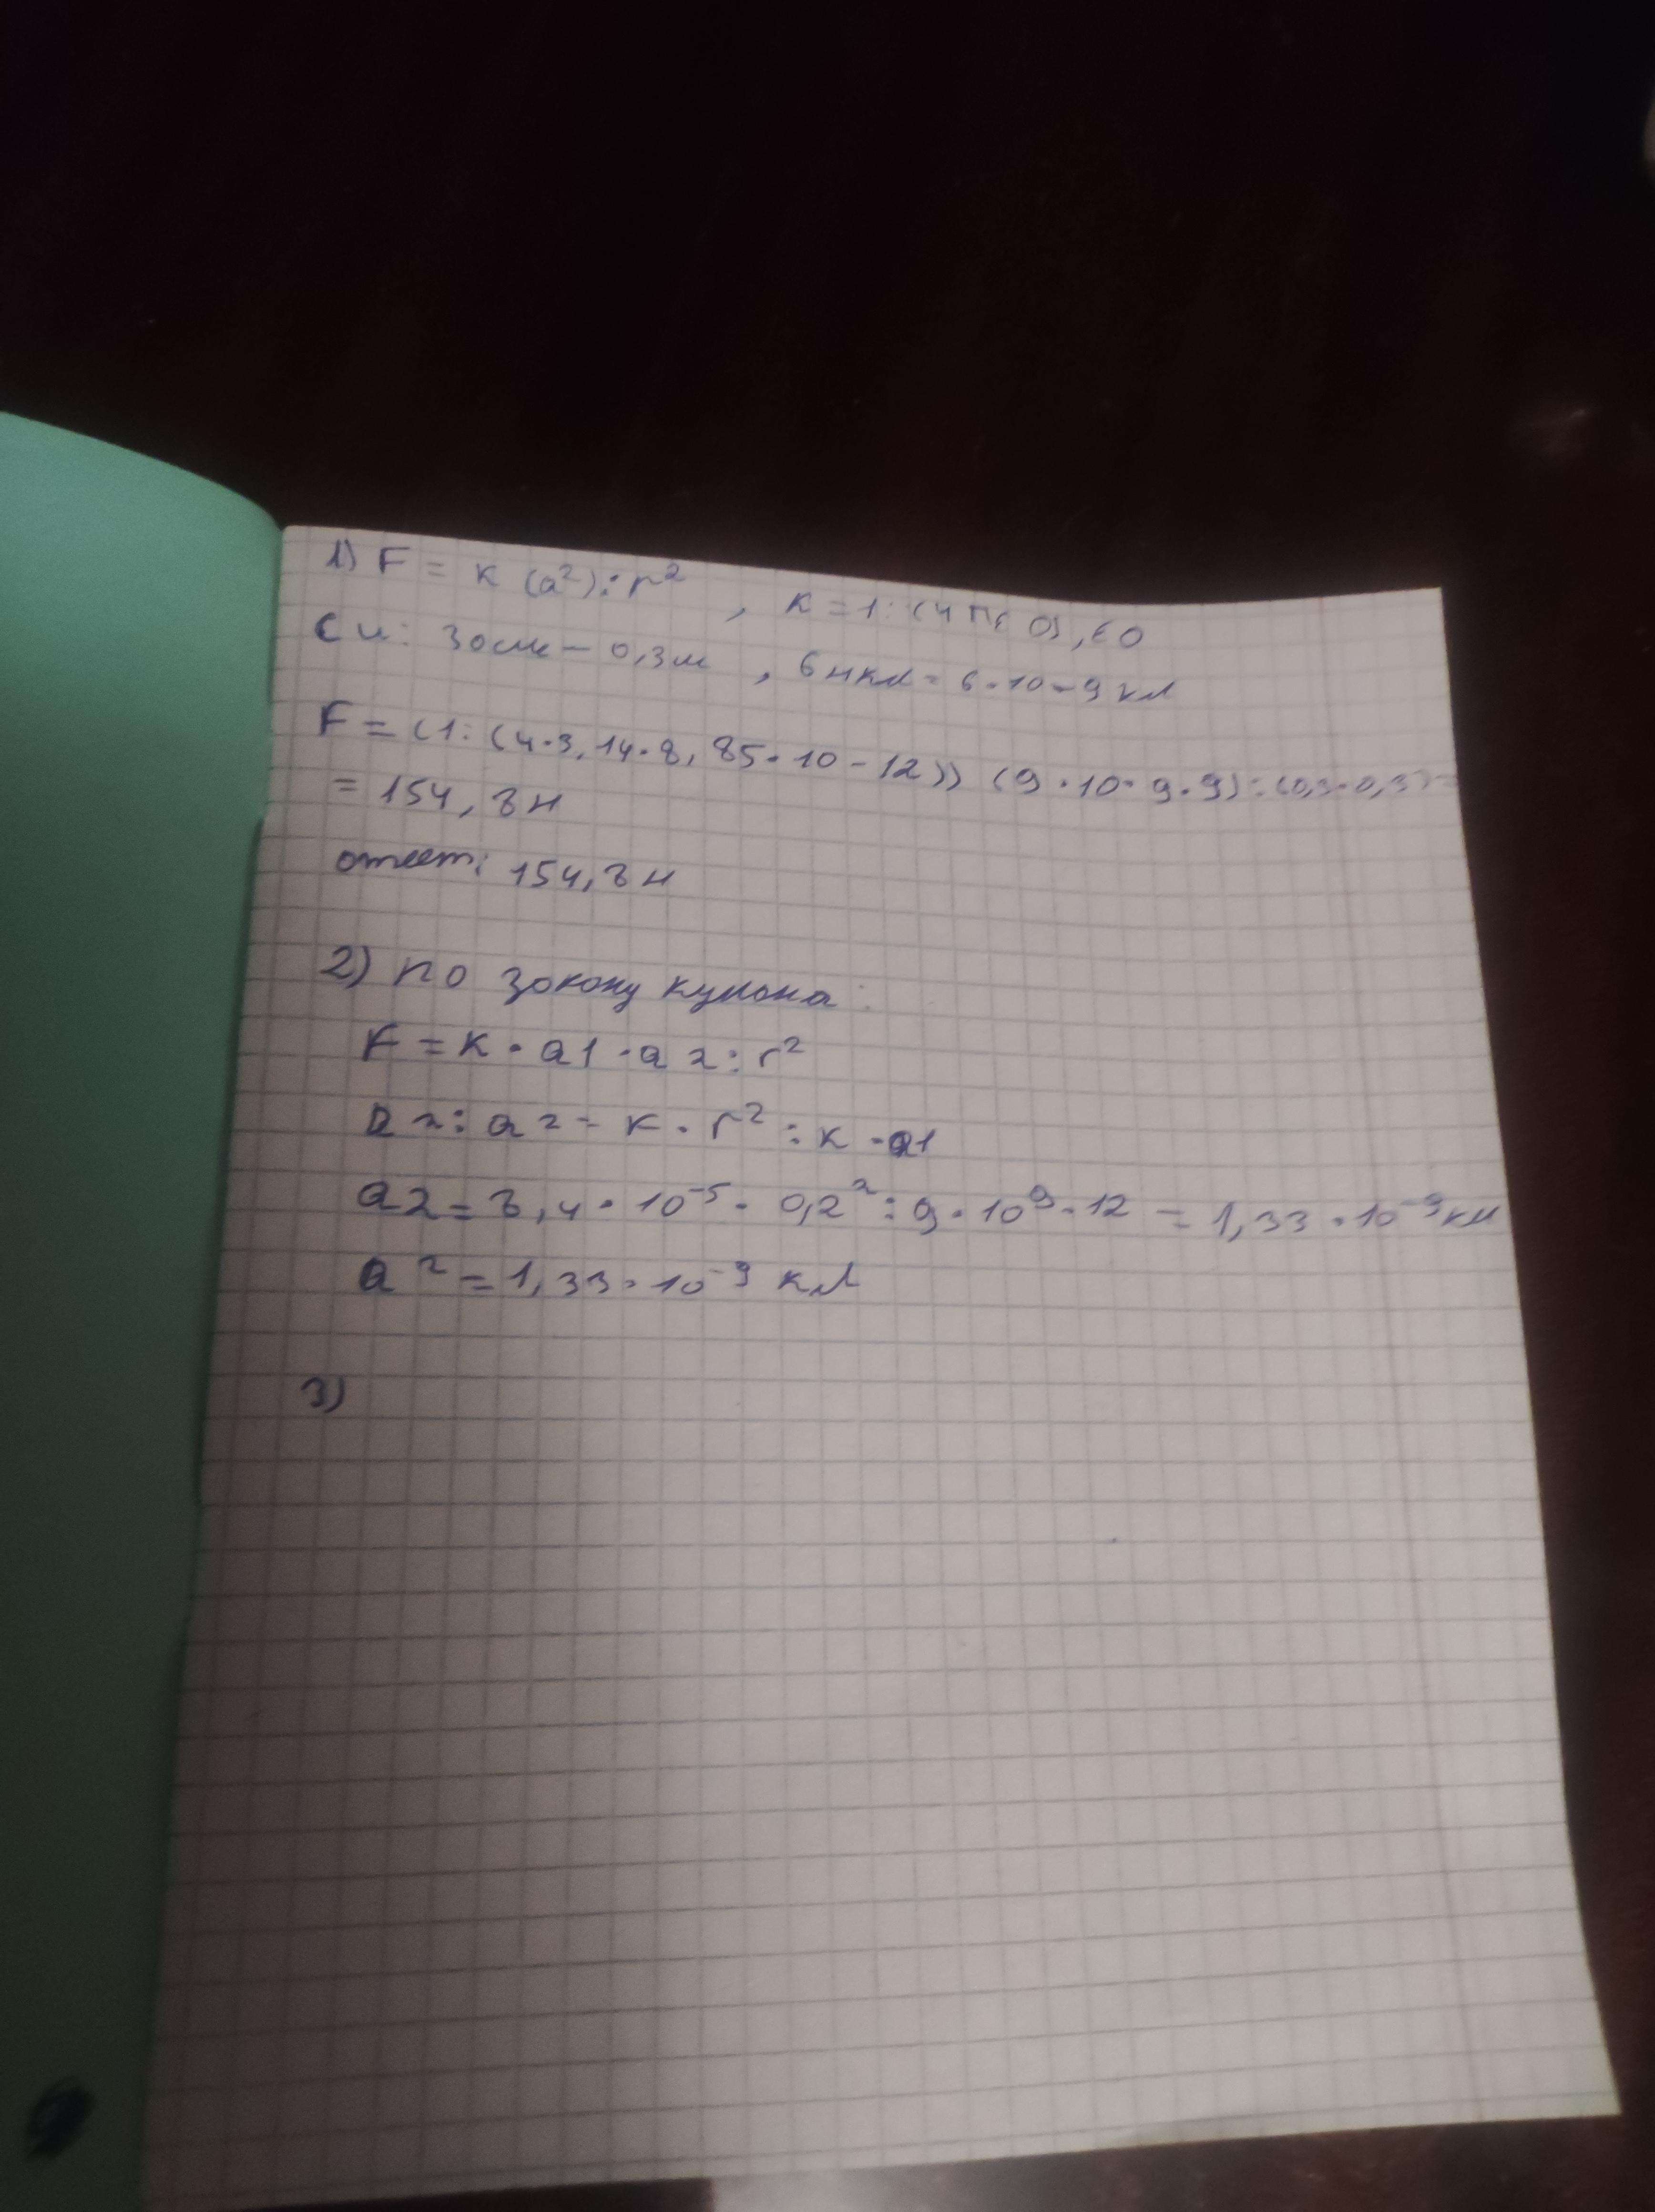 1) F = к (a²) : r² , к = 1 : (4 П ε 0), ε 0
Си: 30см – 0,3м , 6 нкл = 6 · 10 - 9 кл
F = (1 : (4 · 3,14 · 8,85 · 10 - 12)) (9 · 10 · 9 · 9) : (0,3 · 0,3) =
= 154,8 н
ответ: 154,8 н
2) по закону кулона:
F = к · a1 · a2 : r²
a2 : a2 = к · r² : к · a1
a2 = 8,4 · 10⁻⁵ · 0,2² : 9 · 10⁹ · 12 = 1,33 · 10⁻⁹ кл
a² = 1,33 · 10⁻⁹ кл
3)